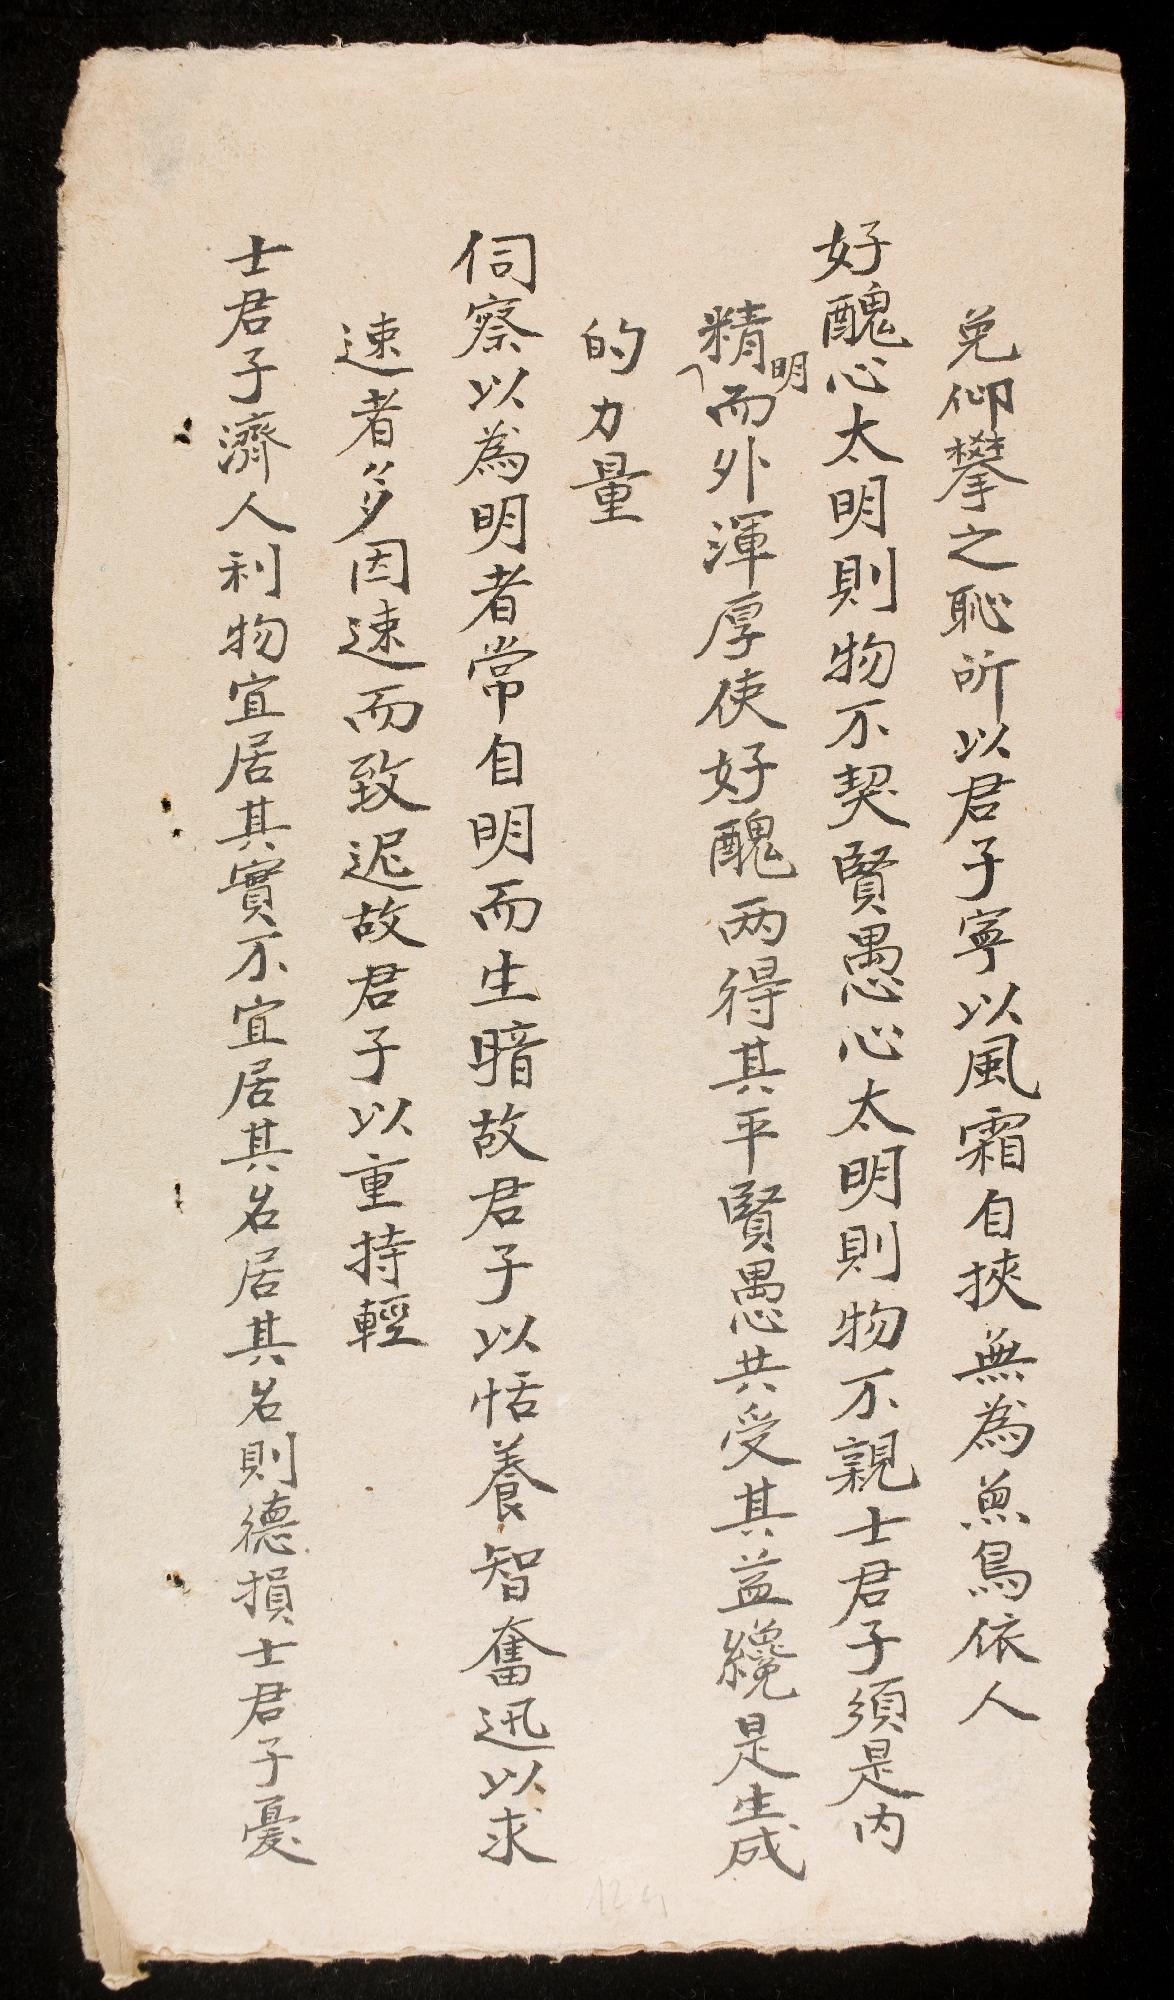 免仰攀之恥所以君子寧以風霜自挾無為魚鳥依人
好醜心太明則物不契賢愚心太明則物不親士君子須是内
精明而外渾厚使好醜两得其平賢愚共受其益纔是生成
的力量
伺察以為明者常自明而生暗故君子以恬養智奮迅以求
速者多因速而致迟故君子以重持輕
士君子濟人利物宜居其實不宜居其名居其名則德損士君子憂